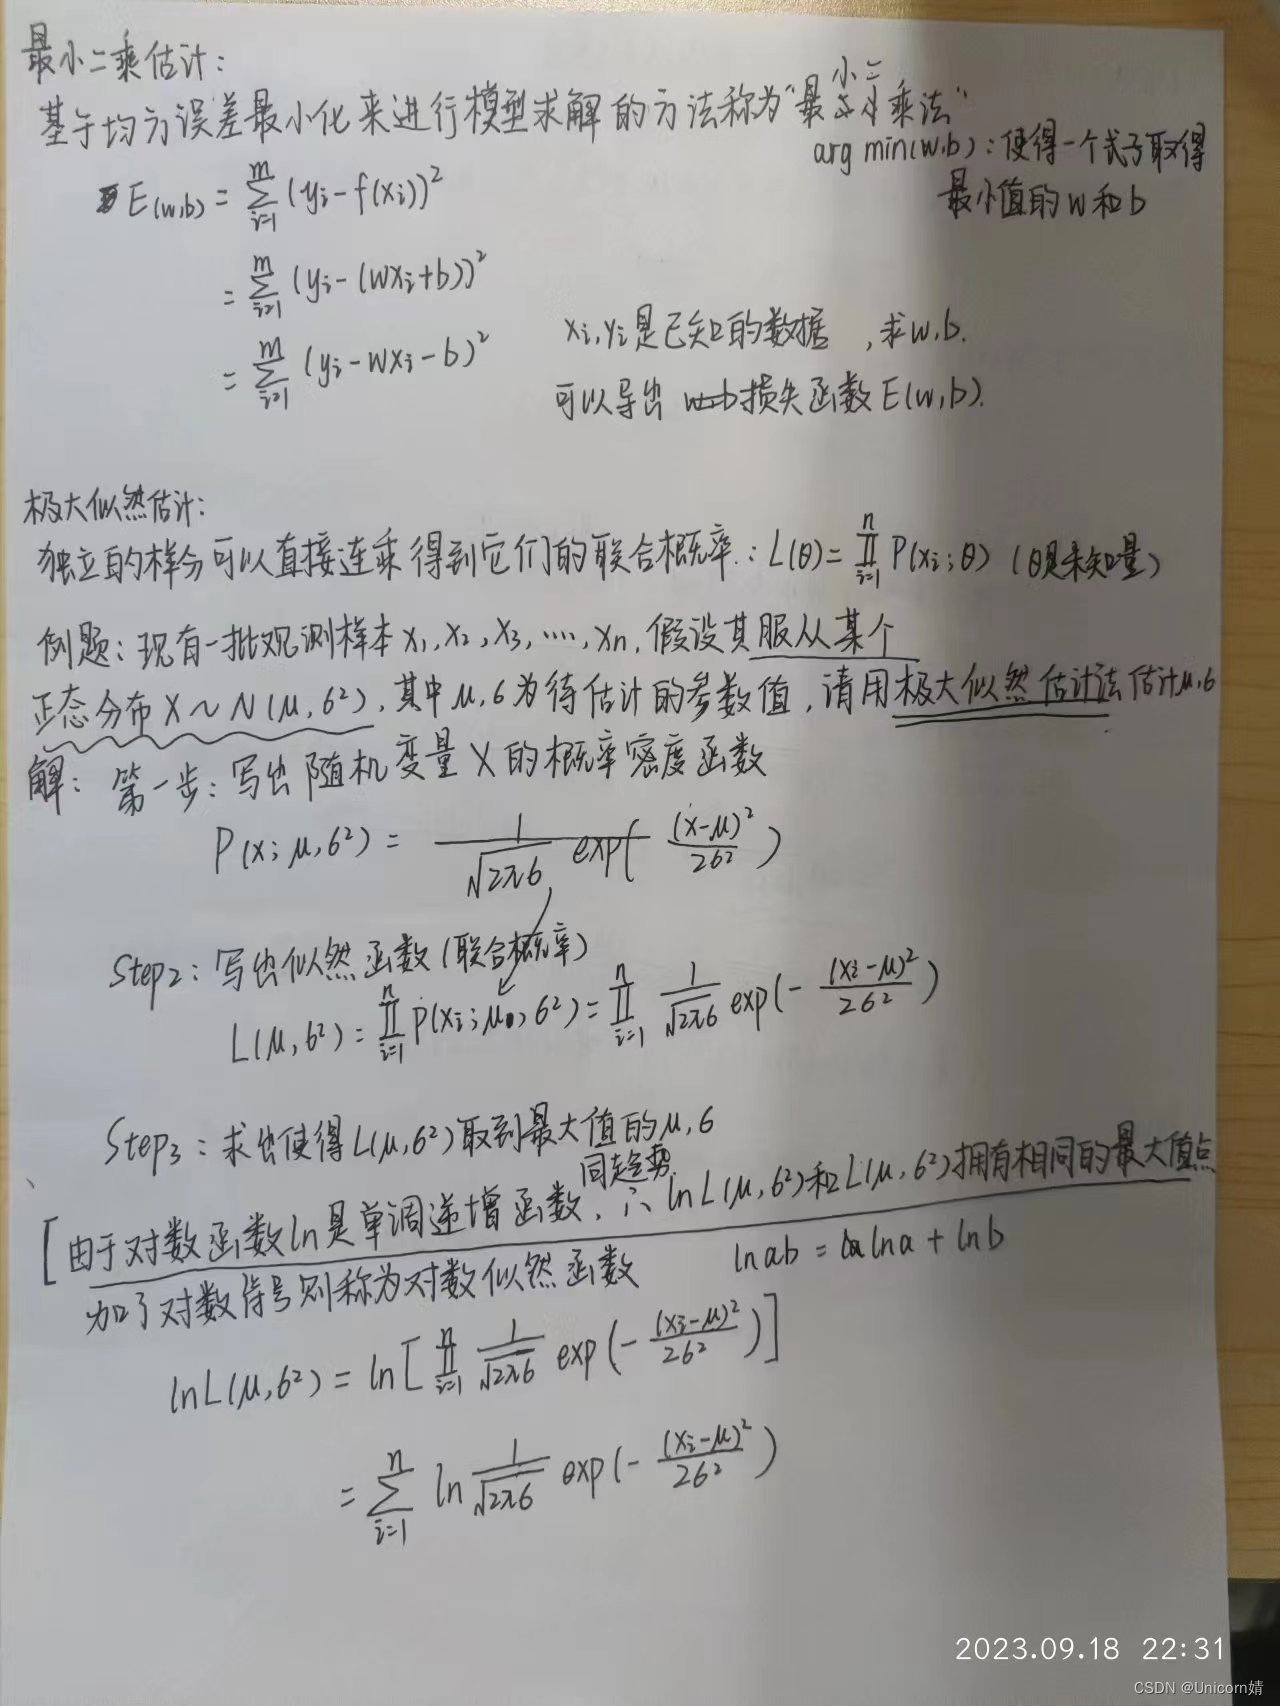 最小二乘估计：
基于均方误差最小化来进行模型求解的方法称为“最小二乘法”
arg min(w,b)：使得一个式子取得
最小值的w和b
E(w,b) = ∑_{i=1}^{m} (yi - f(xi))²
= ∑_{i=1}^{m} (yi - (wxi+b))²
= ∑_{i=1}^{m} (yi - wxi - b)²
xi,yi是已知的数据，求w,b.
可以导出 损失函数E(w,b).
极大似然估计：
独立的样分可以直接连乘得到它们的联合概率：L(θ)= ∏_{i=1}^{n} P(xi;θ) (θ是未知量)
例题：现有一批观测样本x1,x2,x3,····,xn,假设其服从某个
正态分布X~N(μ,6²),其中μ,6为待估计的参数值，请用极大似然估计法估计μ,6
解：第一步：写出随机变量X的概率密度函数
P(x;μ,6²) = 1/√2π6 exp(- (x-μ)²/26²)
Step2：写出似然函数(联合概率)
L(μ,6²) = ∏_{i=1}^{n} p(xi;μ,6²) = ∏_{i=1}^{n} 1/√2π6 exp(- (xi-μ)²/26²)
Step3：求出使得L(μ,6²)取到最大值的μ,6
同趋势
[由于对数函数ln是单调递增函数，∴ lnL(μ,6²)和L(μ,6²)拥有相同的最大值点
加了对数符号则称为对数似然函数
lnab = lna + lnb
lnL(μ,6²) = ln[∏_{i=1}^{n} 1/√2π6 exp(- (xi-μ)²/26²)]
= ∑_{i=1}^{n} ln 1/√2π6 exp(- (xi-μ)²/26²)
2023.09.18 22:31
CSDN @Unicorn婧